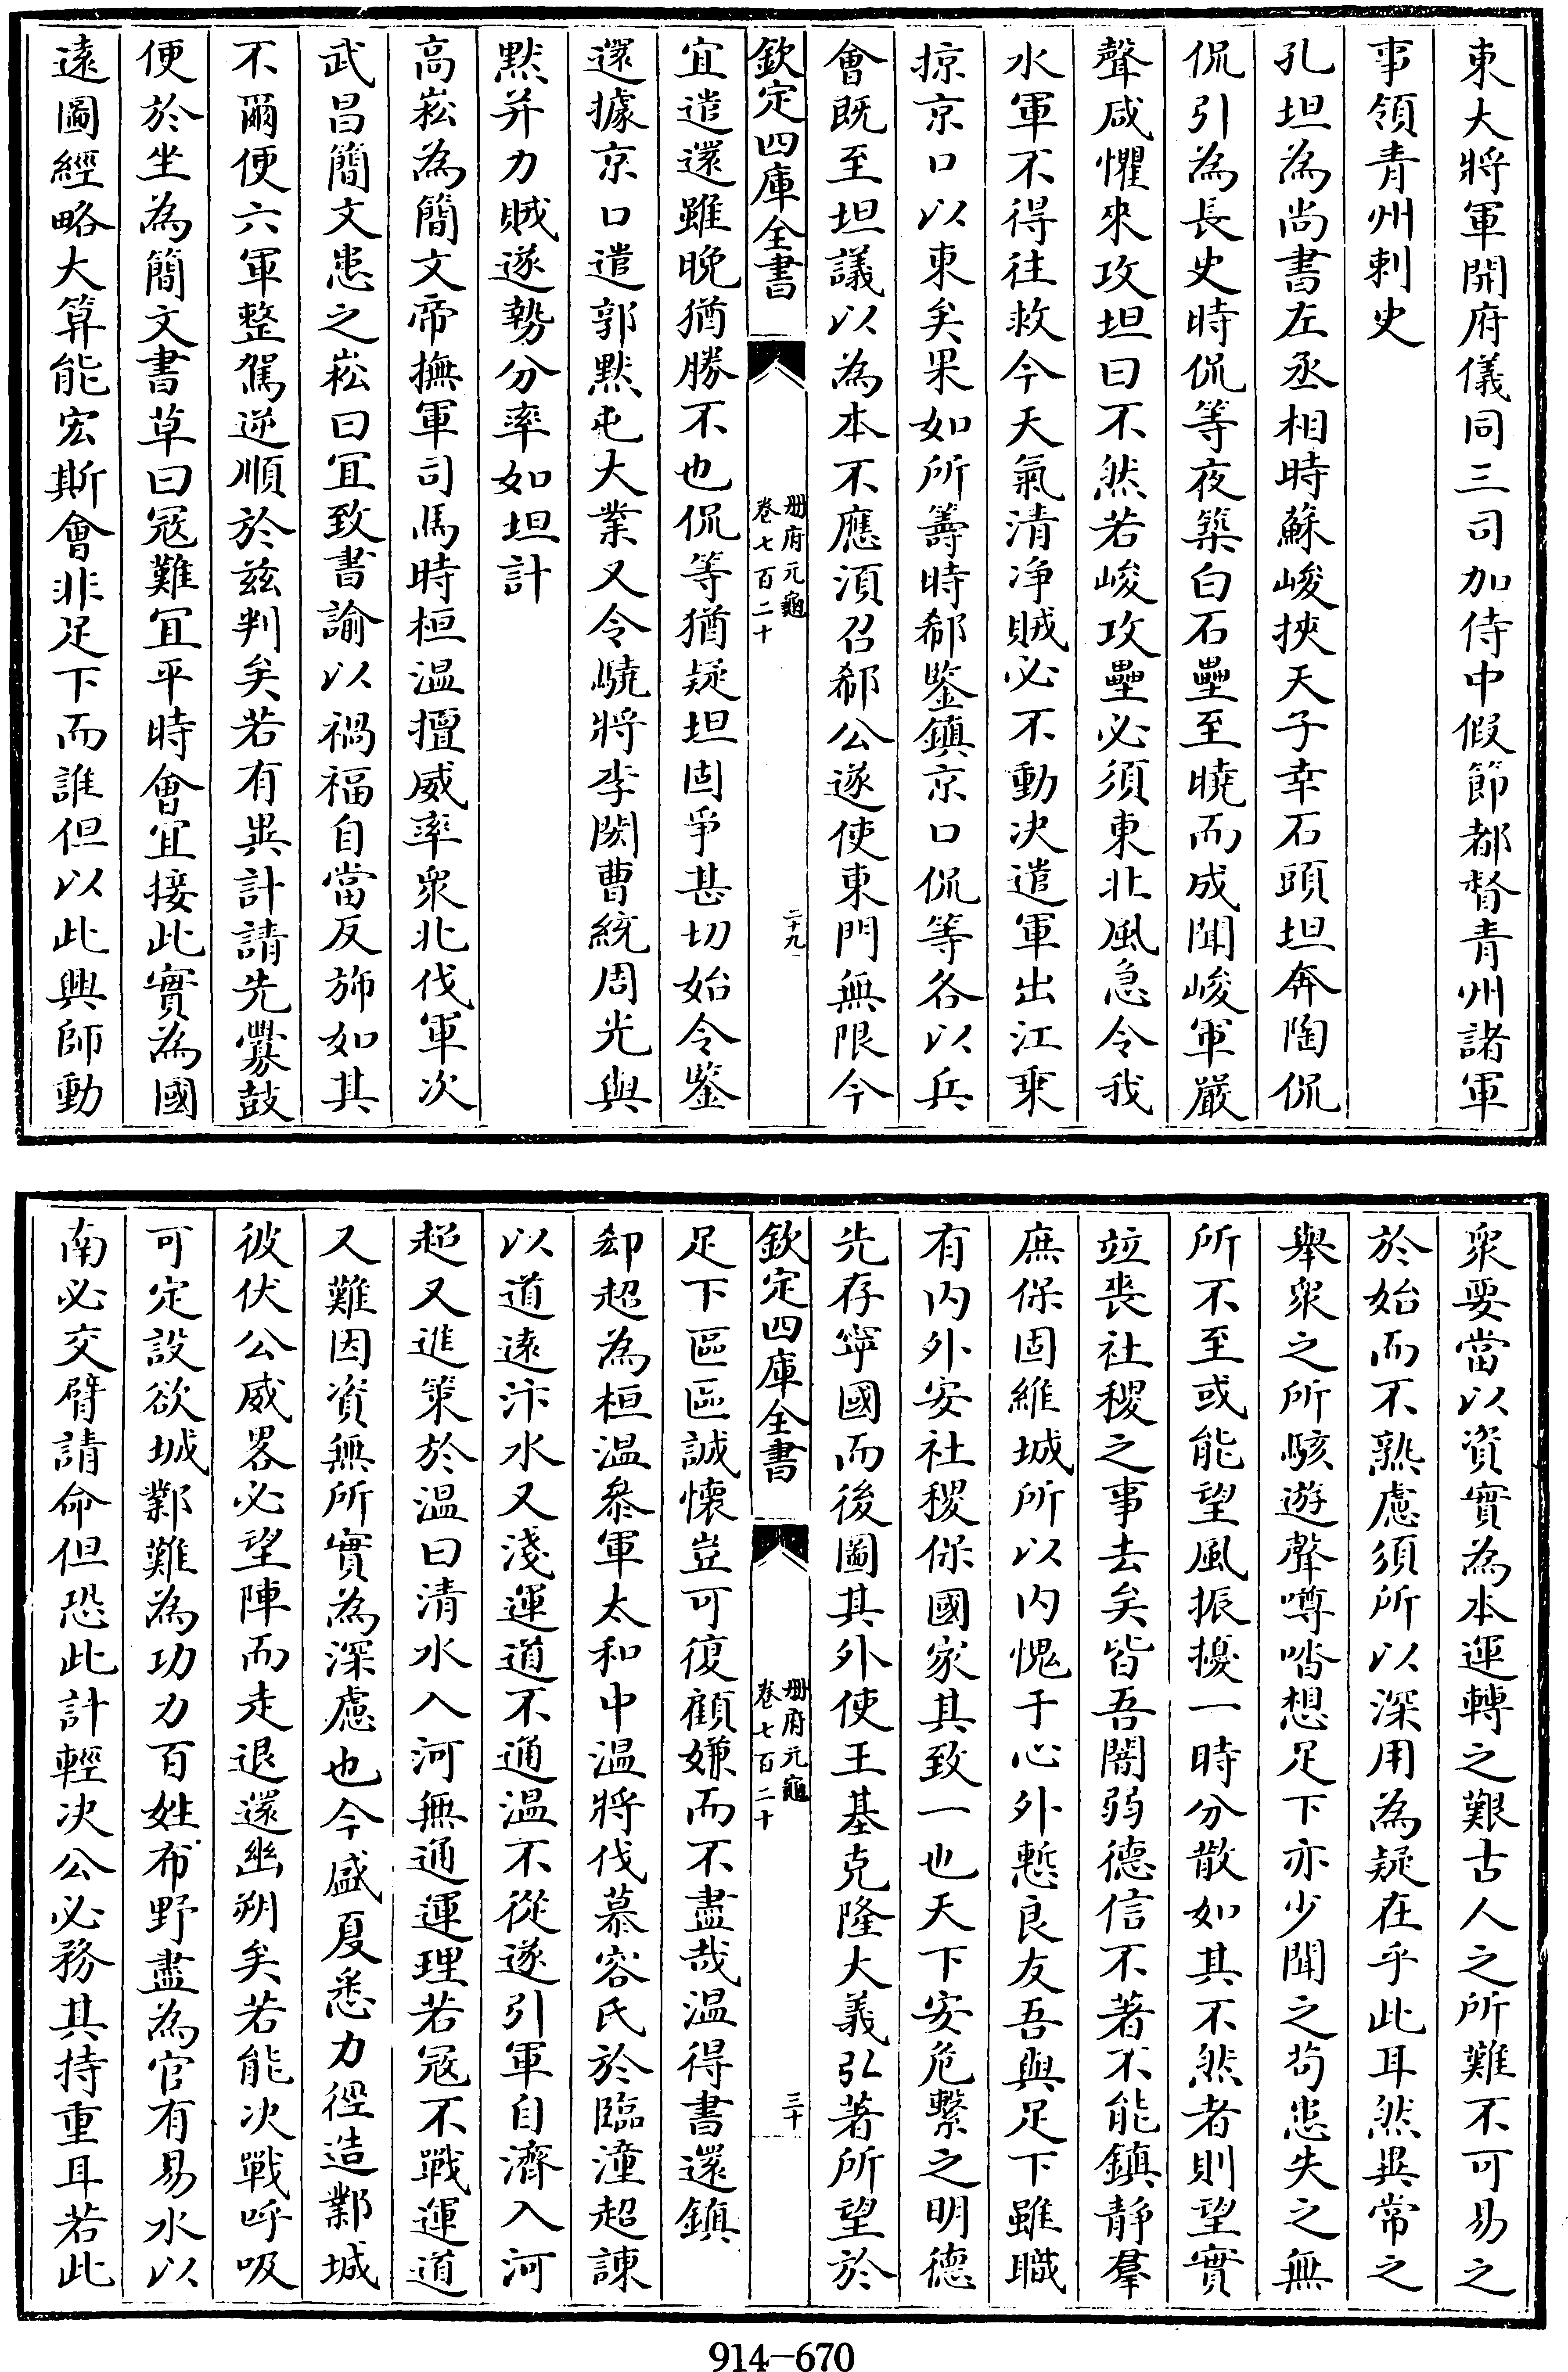 東大將軍開府儀同三司加侍中假節都督青州諸軍
事領青州刺史
孔坦為尚書左丞相時蘇峻挾天子幸石頭坦奔陶侃
侃引為長史時侃等夜築白石壘至曉而成聞峻軍嚴
聲咸懼來攻坦曰不然若峻攻壘必須東北風急令我
水軍不得往救今天氣清净賊必不動决遣軍出江乗
掠京口以東矣果如所籌時郗鑒鎮京口侃等各以兵
會既至坦議以為本不應湏召郗公遂使東門無限今
欽定四庫全書
冊府元龜
卷七百二十
二十九
宜遣還雖晩猶勝不也侃等猶疑坦固爭甚切始令鑒
還據京口遣郭黙屯大業又令驍將李閎曹統周光與
黙并力賊遂勢分率如坦計
高崧為簡文帝撫軍司馬時桓温擅威率衆北伐軍次
武昌簡文患之崧曰冝致書諭以禍福自當反斾如其
不爾便六軍整駕逆順於兹判矣若有異計請先釁鼓
便於坐為簡文書草曰冦難宜平時會宜接此實為國
逺圖經略大算能宏斯會非足下而誰但以此興師動
衆要當以資實為本運轉之艱古人之所難不可易之
於始而不熟慮須所以深用為疑在乎此耳然異常之
舉衆之所駭遊聲噂㳫想足下亦少聞之茍患失之無
所不至或能望風振擾一時分散如其不然者則望實
竝喪社稷之事去矣皆吾闇弱德信不著不能鎮靜羣
庶保固維城所以内愧于心外慙良友吾與足下雖職
有内外安社稷保國家其致一也天下安危繫之明德
先存寧國而後圖其外使王基克隆大義弘著所望於
欽定四庫全書
冊府元龜
卷七百二十
三十
足下區區誠懷豈可復顧嫌而不盡哉温得書還鎮
郄超為桓温叅軍太和中温將伐慕容氏於臨潼超諌
以道逺汴水又淺運道不通温不從遂引軍自濟入河
超又進策於温曰清水入河無通運理若冦不戰運道
又難因資無所實為深慮也今盛夏悉力徑造鄴城
彼伏公威畧必望陣而走退還幽朔矣若能决戰呼吸
可定設欲城鄴難為功力百姓布野盡為官有易水以
南必交臂請命但恐此計輕决公必務其持重耳若此
914-670